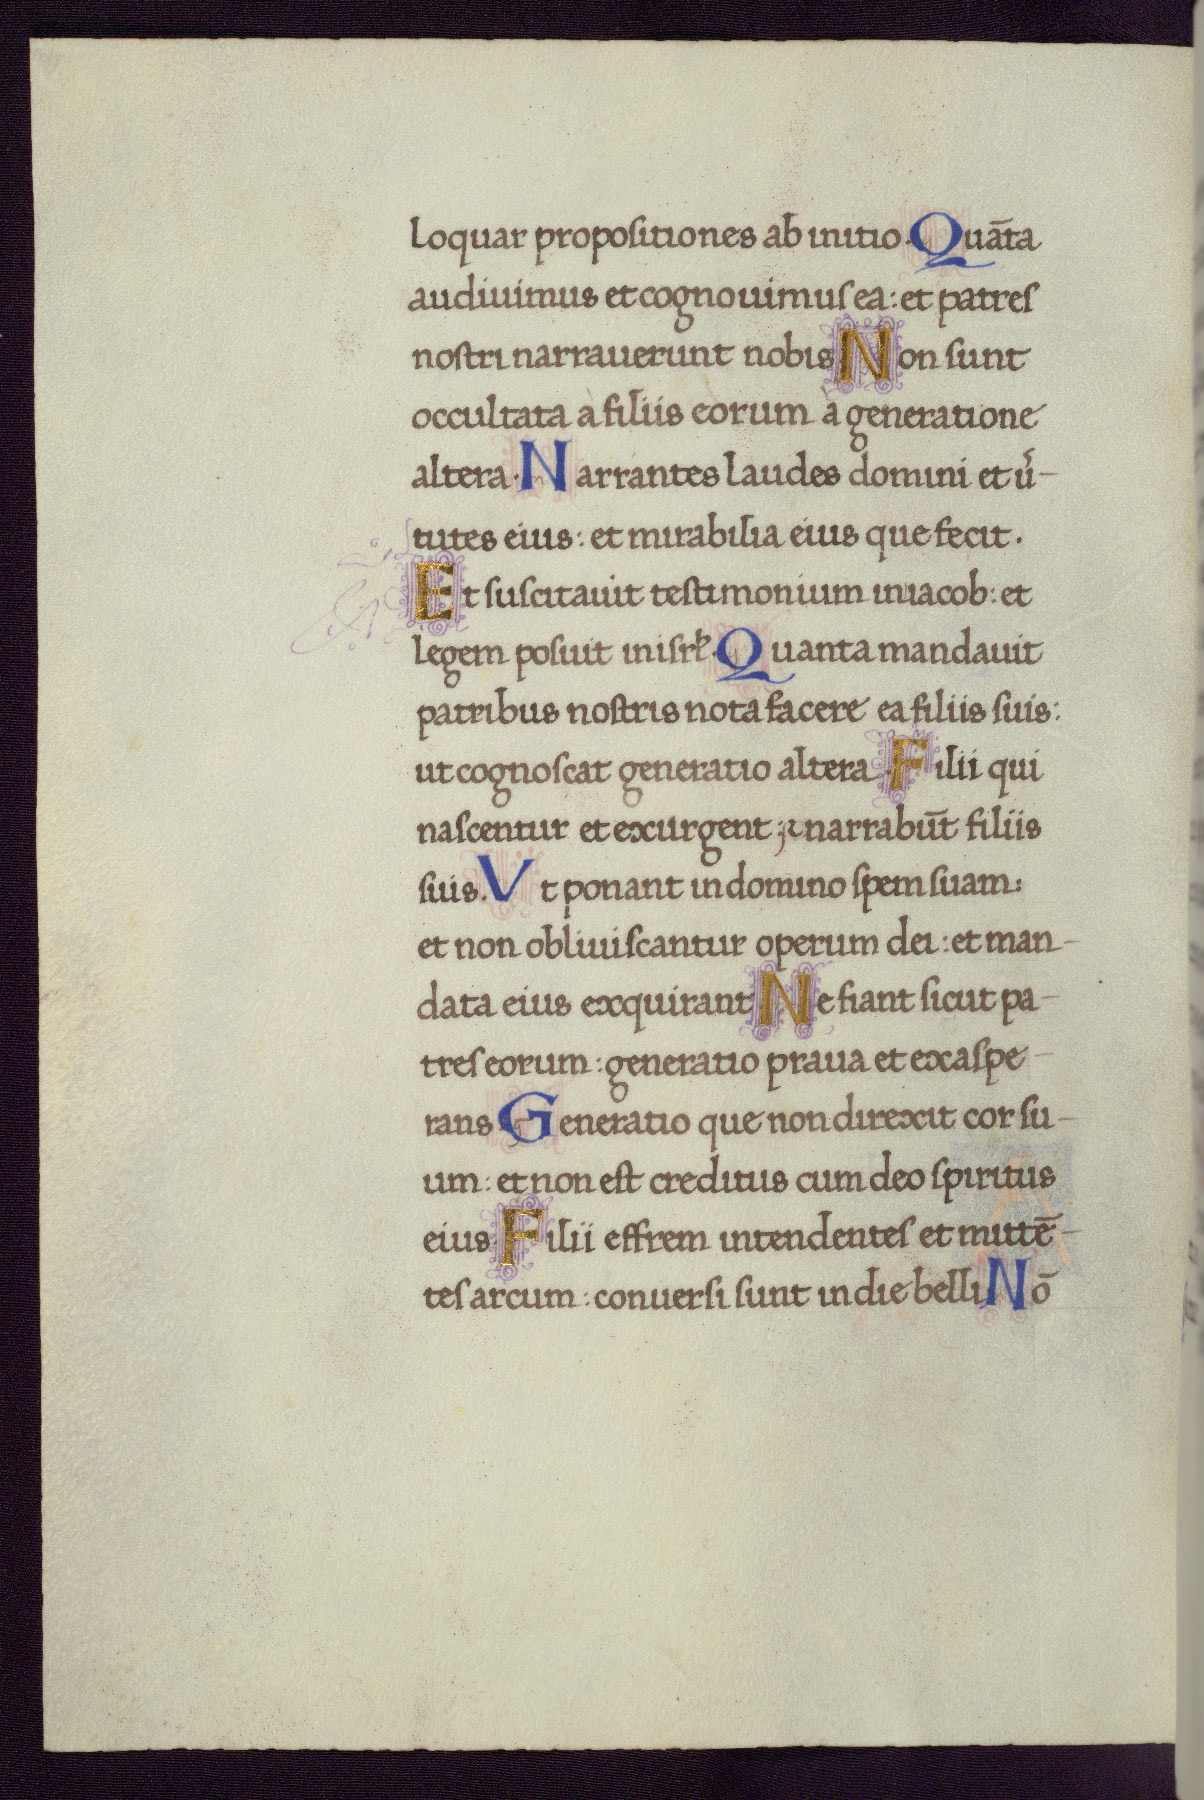 loquar propositiones ab initio. Quāta
audiuimus et cognouimus ea: et patres
nostri narrauerunt nobis Non sunt
occultata a filiis eorum à generatione
altera. Narrantes laudes domini et uí-
tutes eius: et mirabilia eius que fecit.
Et suscitauit testimonium in iacob: et
legem posuit in isrł. Quanta mandauit
patribus nostris nota facere ea filiis suis:
ut cognoscat generatio altera. Filii qui
nascentur et exurgent: ⁊ narrabūt filiis
suis. Vt ponant in domino spem suam:
et non obliuiscantur operum dei: et man-
data eius exquirant Ne fiant sicut pa-
tres eorum: generatio praua et exaspe-
rans Generatio que non direxit cor su-
um: et non est creditus cum deo spiritus
eius. Filii effrem intendentes et mittē-
tes arcum: conuersi sunt in die belli Nō